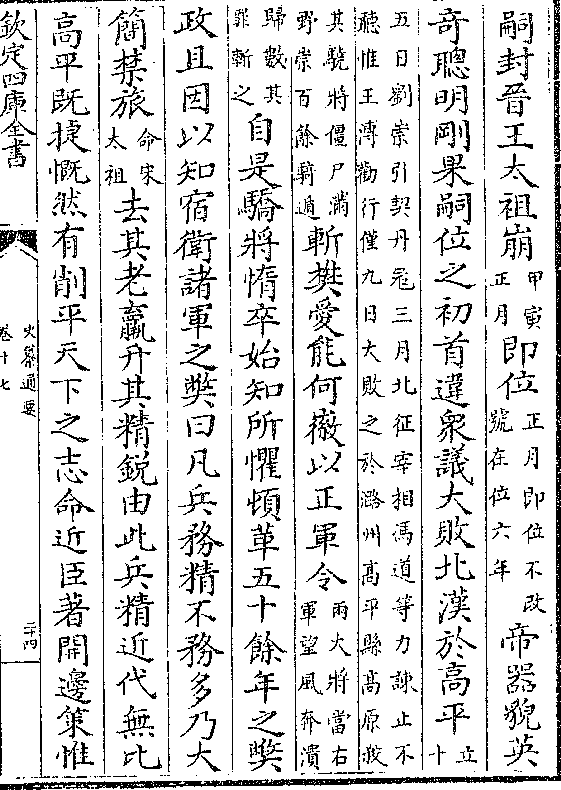 嗣封晉王太祖崩甲寅正月即位正月即位不改號在位六年帝器貌英
奇聰明剛果嗣位之初首違衆議大敗北漢於高平立十
五日劉崇引契丹冦三月北征宰相馮道等力諫止不聽惟王溥勸行僅九日大敗之於潞州髙平縣髙原殺
其驍將僵尸滿野崇百餘騎遁斬樊愛能何徽以正軍令兩大將當右軍望風奔潰
歸數其罪斬之自是驕將惰卒始知所懼頓革五十餘年之獘
政且因以知宿衛諸軍之獘曰凡兵務精不務多乃大
簡禁旅命宋太祖去其老羸升其精銳由此兵精近代無比
高平既捷慨然有削平天下之志命近臣著開邊策惟
欽定四庫全書
卷十七
二十四